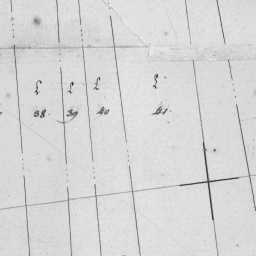 £ £ £ £
38. 39 40 41.